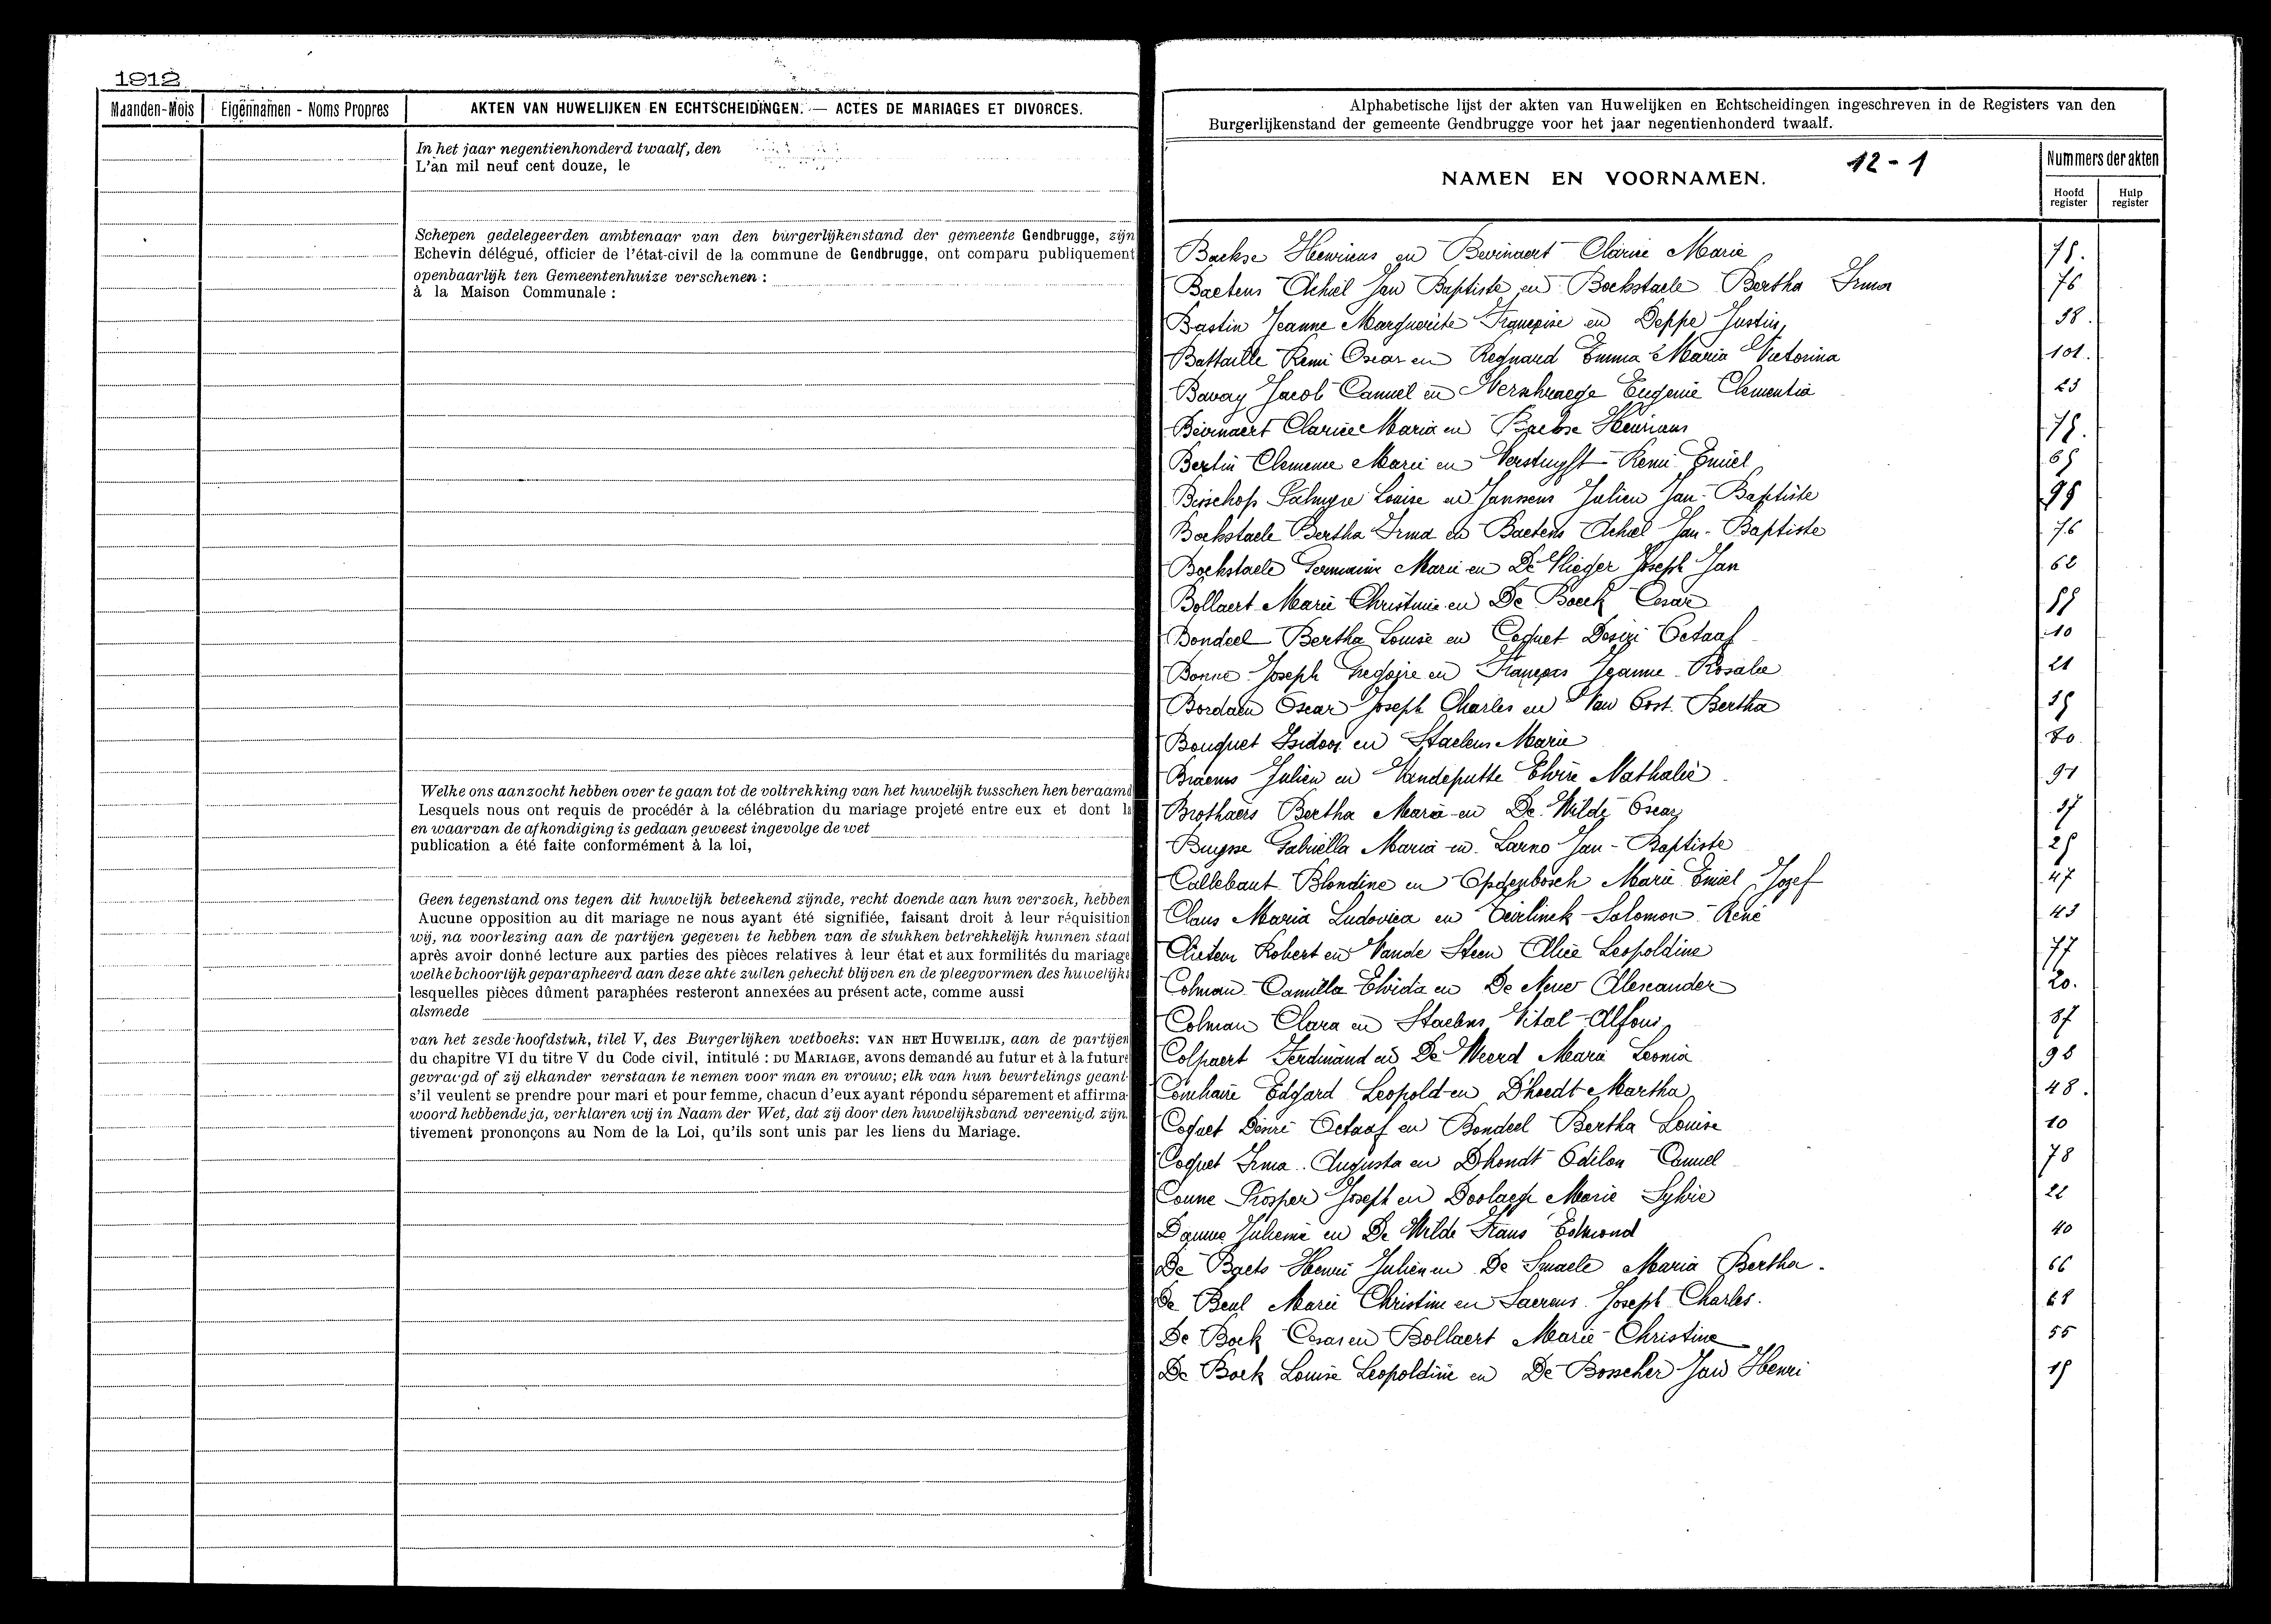 1912
Maanden-Mois
Eigennamen - Noms Propres
AKTEN VAN HUWELIJKEN EN ECHTSCHEIDINGEN. — ACTES DE MARIAGES ET DIVORCES.
In het jaar negentienhonderd twaalf, den
L'an mil neuf cent douze, le
Schepen gedelegeerden ambtenaar van den burgerlijkenstand der gemeente Gendbrugge, zijn
Echevin délégué, officier de l'état-civil de la commune de Gendbrugge, ont comparu publiquement
openbaarlijk ten Gemeentenhuize verschenen :
à la Maison Communale :
Welke ons aanzocht hebben over te gaan tot de voltrekking van het huwelijk tusschen hen beraamd
Lesquels nous ont requis de procédér à la célébration du mariage projeté entre eux et dont la
en waarvan de afkondiging is gedaan geweest ingevolge de wet
publication a été faite conformément à la loi,
Geen tegenstand ons tegen dit huwelijk beteekend zijnde, recht doende aan hun verzoek, hebben
Aucune opposition au dit mariage ne nous ayant été signifiée, faisant droit à leur réquisition
wij, na voorlezing aan de partijen gegeven te hebben van de stukken betrekkelijk hunnen staat
après avoir donné lecture aux parties des pièces relatives à leur état et aux formilités du mariage
welke behoorlijk geparapheerd aan deze akte zullen gehecht blijven en de pleegvormen des huwelijks
lesquelles pièces dûment paraphées resteront annexées au présent acte, comme aussi
alsmede
van het zesde hoofdstuk, tilel V, des Burgerlijken wetboeks: VAN HET HUWELIJK, aan de partijen
du chapitre VI du titre V du Code civil, intitulé : DU MARIAGE, avons demandé au futur et à la future
gevraagd of zij elkander verstaan te nemen voor man en vrouw; elk van hun beurtelings geant-
s'il veulent se prendre pour mari et pour femme, chacun d'eux ayant répondu séparement et affirma-
woord hebbende ja, verklaren wij in Naam der Wet, dat zij door den huwelijksband vereenigd zijn.
tivement prononçons au Nom de la Loi, qu'ils sont unis par les liens du Mariage.
Alphabetische lijst der akten van Huwelijken en Echtscheidingen ingeschreven in de Registers van den
Burgerlijkenstand der gemeente Gendbrugge voor het jaar negentienhonderd twaalf.
NAMEN EN VOORNAMEN. 12-1
Nummers der akten
Hoofd register
Hulp register
Baekse Henricus en Bevinaert Clarice Marie 75.
Baetens Achiel Jan Baptiste en Bockstaele Bertha Irma 76
Bastin Jeanne Marguerite Françoise en Deppe Justin 38.
Battaille Remi Oscar en Regnard Emma Maria Victorina 101.
Bavay Jacob Camiel en Verschraege Eugenie Clementia 23
Bevinaert Clarice Maria en Baekse Henricus 75.
Bertin Clemence Marie en Verstuyft Remi Emiel 65
Bisschop Palmyre Louise en Janssens Julien Jan-Baptiste 95
Bockstaele Bertha Irma en Baetens Achiel Jan-Baptiste 76
Bockstaele Germaine Marie en De Vlieger Joseph Jan 62
Bollaert Marie Christine en De Boeck Cesar 55
Bondeel Bertha Louise en Coquet Desiré Octaaf 10
Bonne Joseph Gregoire en François Jeanne Rosalie 21
Bordaen Oscar Joseph Charles en Van Oost Bertha 35
Bouquet Isidoor en Staelens Marie 80
Braems Julien en Vandeputte Elvire Nathalie 91
Brothaers Bertha Maria en De Wilde Oscar 37
Buysse Gabriella Maria en Larno Jan-Baptiste 25
Callebaut Blondine en Opdenbosch Marie Emiel Jozef 47
Claus Maria Ludovica en Teirlinck Salomon René 43
Clietem Robert en Vande Steen Alice Leopoldine 77
Colman Camilla Elvida en De Neve Alexander 20.
Colman Clara en Staelens Vital Alfons 87
Colpaert Ferdinand en De Weerd Maria Leonia 98
Comhaire Edgard Leopold en D'hoedt Martha 48.
Coquet Désiré Octaaf en Bondeel Bertha Louise 10
Coquet Irma Augusta en Dhondt Odilon Camiel 78
Coune Prosper Joseph en Doolaege Marie Sylvie 22
Damme Julienne en De Wilde Frans Edmond 40
De Baets Henri Julien en De Smaele Maria Bertha. 66
De Beul Marie Christine en Saerens Joseph Charles. 68
De Bock Cesar en Bollaert Marie-Christine 55
De Bock Louise Leopoldine en De Bosscher Jan Henri 15